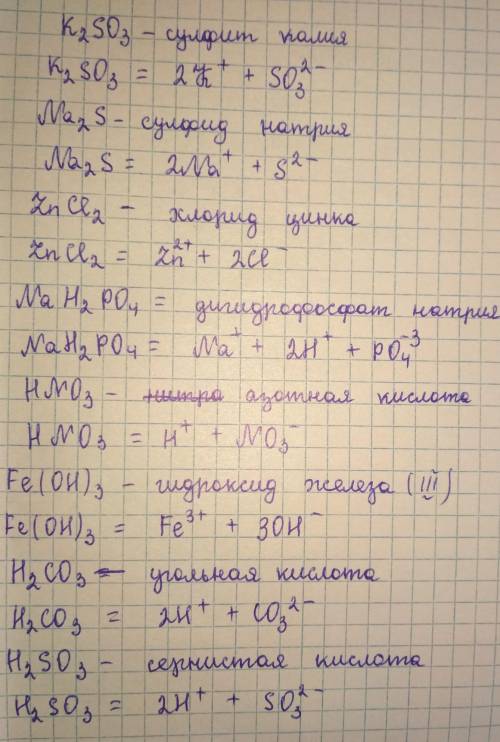 K₂SO₃ – сулфит калия
K₂SO₃ = 2K⁺ + SO₃²⁻
Na₂S – сулфид натрия
Na₂S = 2Na⁺ + S²⁻
ZnCl₂ – хлорид цинка
ZnCl₂ = Zn²⁺ + 2Cl⁻
NaH₂PO₄ = дигидрофосфат натрия
NaH₂PO₄ = Na⁺ + 2H⁺ + PO₄⁻³
HNO₃ – нитра азотная кислота
HNO₃ = H⁺ + NO₃⁻
Fe(OH)₃ – гидроксид железа (III)
Fe(OH)₃ = Fe³⁺ + 3OH⁻
H₂CO₃ – угольная кислота
H₂CO₃ = 2H⁺ + CO₃²⁻
H₂SO₃ – сернистая кислота
H₂SO₃ = 2H⁺ + SO₃²⁻